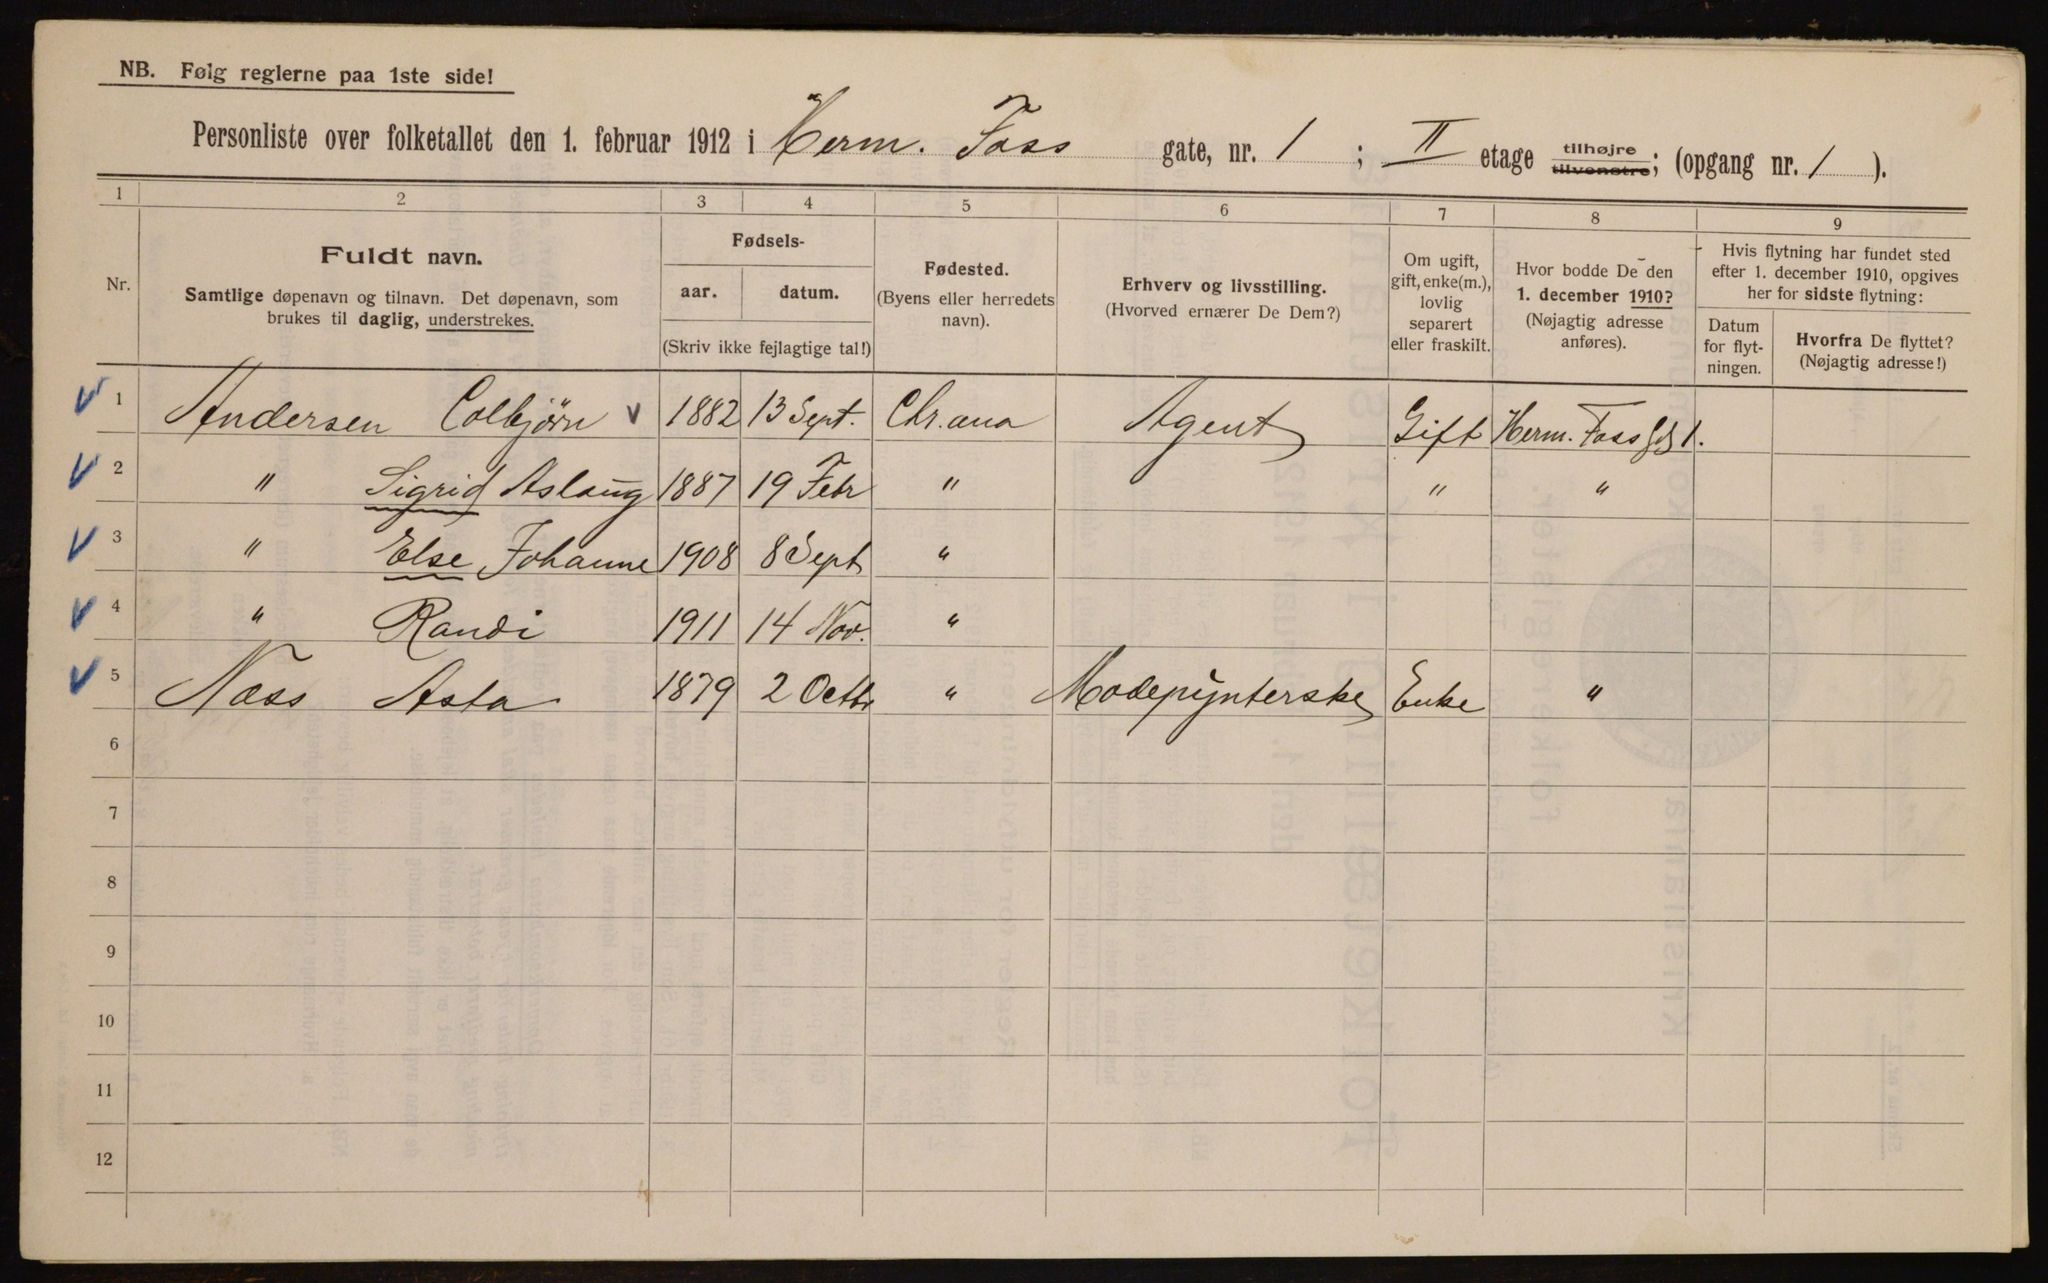 NB. Følg reglerne paa 1ste side!
Personliste over folketallet den 1. februar 1912 i Herm. Foss gate, nr. 1 ; II etage tilhøjre tilvenstre; (opgang nr. 1 ).
1 2 3 4 5 6 7 8 9
Nr.
Fuldt navn.
Samtlige døpenavn og tilnavn. Det døpenavn, som
brukes til daglig, understrekes.
Fødsels-
aar. datum.
(Skriv ikke fejlagtige tal!)
Fødested.
(Byens eller herredets
navn).
Erhverv og livsstilling.
(Hvorved ernærer De Dem?)
Om ugift,
gift, enke(m.),
lovlig
separert
eller fraskilt.
Hvor bodde De den
1. december 1910?
(Nøjagtig adresse
anføres).
Hvis flytning har fundet sted
efter 1. december 1910, opgives
her for sidste flytning:
Datum
for flyt-
ningen.
Hvorfra De flyttet?
(Nøjagtig adresse!)
1 Andersen Colbjørn 1882 13 Sept. Chr.ana Agent Gift Herm. Foss gd 1.
2 " Sigrid Aslaug 1887 19 Febr " " "
3 " Else Johanne 1908 8 Sept "
4 " Randi 1911 14 Nov. "
5 Næss Asta 1879 2 Octbr " Modepynterske Enke "
6
7
8
9
10
11
12